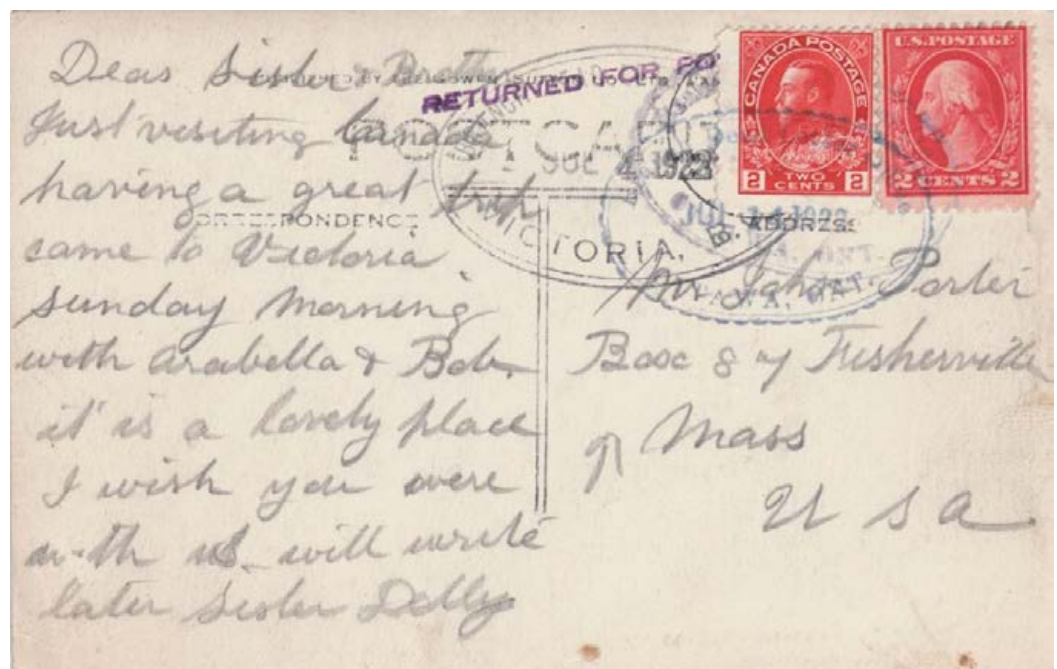 Dear Sister & Brother
Just visiting Canada
having a great trip
came to Victoria
Sunday Morning
with Arabella & Bob.
it is a lovely place
I wish you were
with us will write
later Sister Dolly
RETURNED FOR
POSTCARD
CORRESPONDENCE
ADDRESS
VICTORIA, B.
1922
JUL 14 1922
OTTAWA, ONT.
CANADA POSTAGE
2 TWO CENTS 2
U.S. POSTAGE
2 CENTS 2
Mr John Porter
Box 87 Fisherville
Mass
U S A